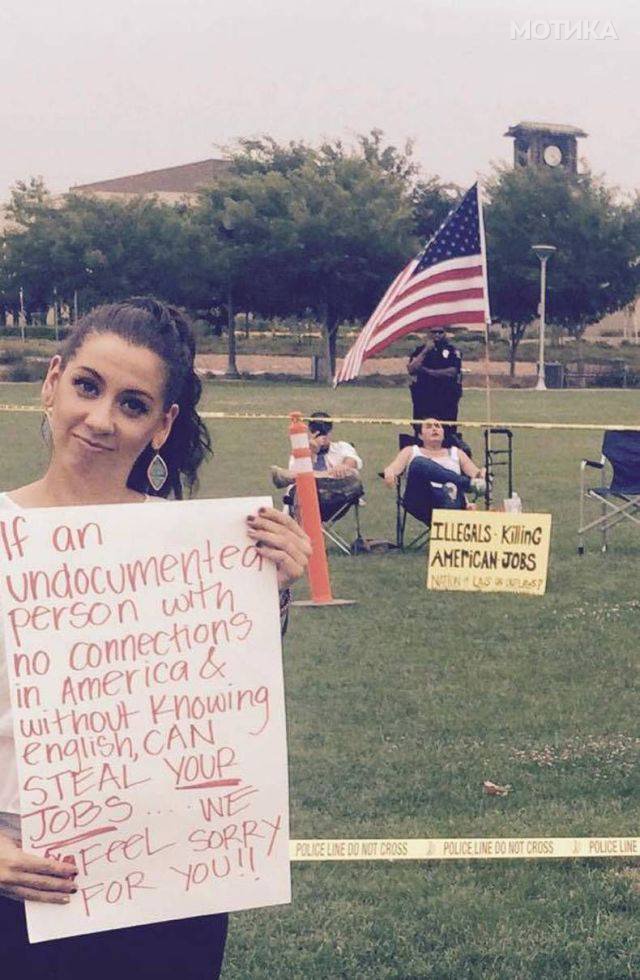 МОТИКА
If an
undocumented
person with
no connections
in America &
without knowing
english, CAN
STEAL YOUR
JOBS .... WE
FEEL SORRY
FOR YOU!!
ILLEGALS KilliNG
AMERiCAN JOBS
NATION OF LAWS OR OUTLAWS?
POLICE LINE DO NOT CROSS POLICE LINE DO NOT CROSS POLICE LINE